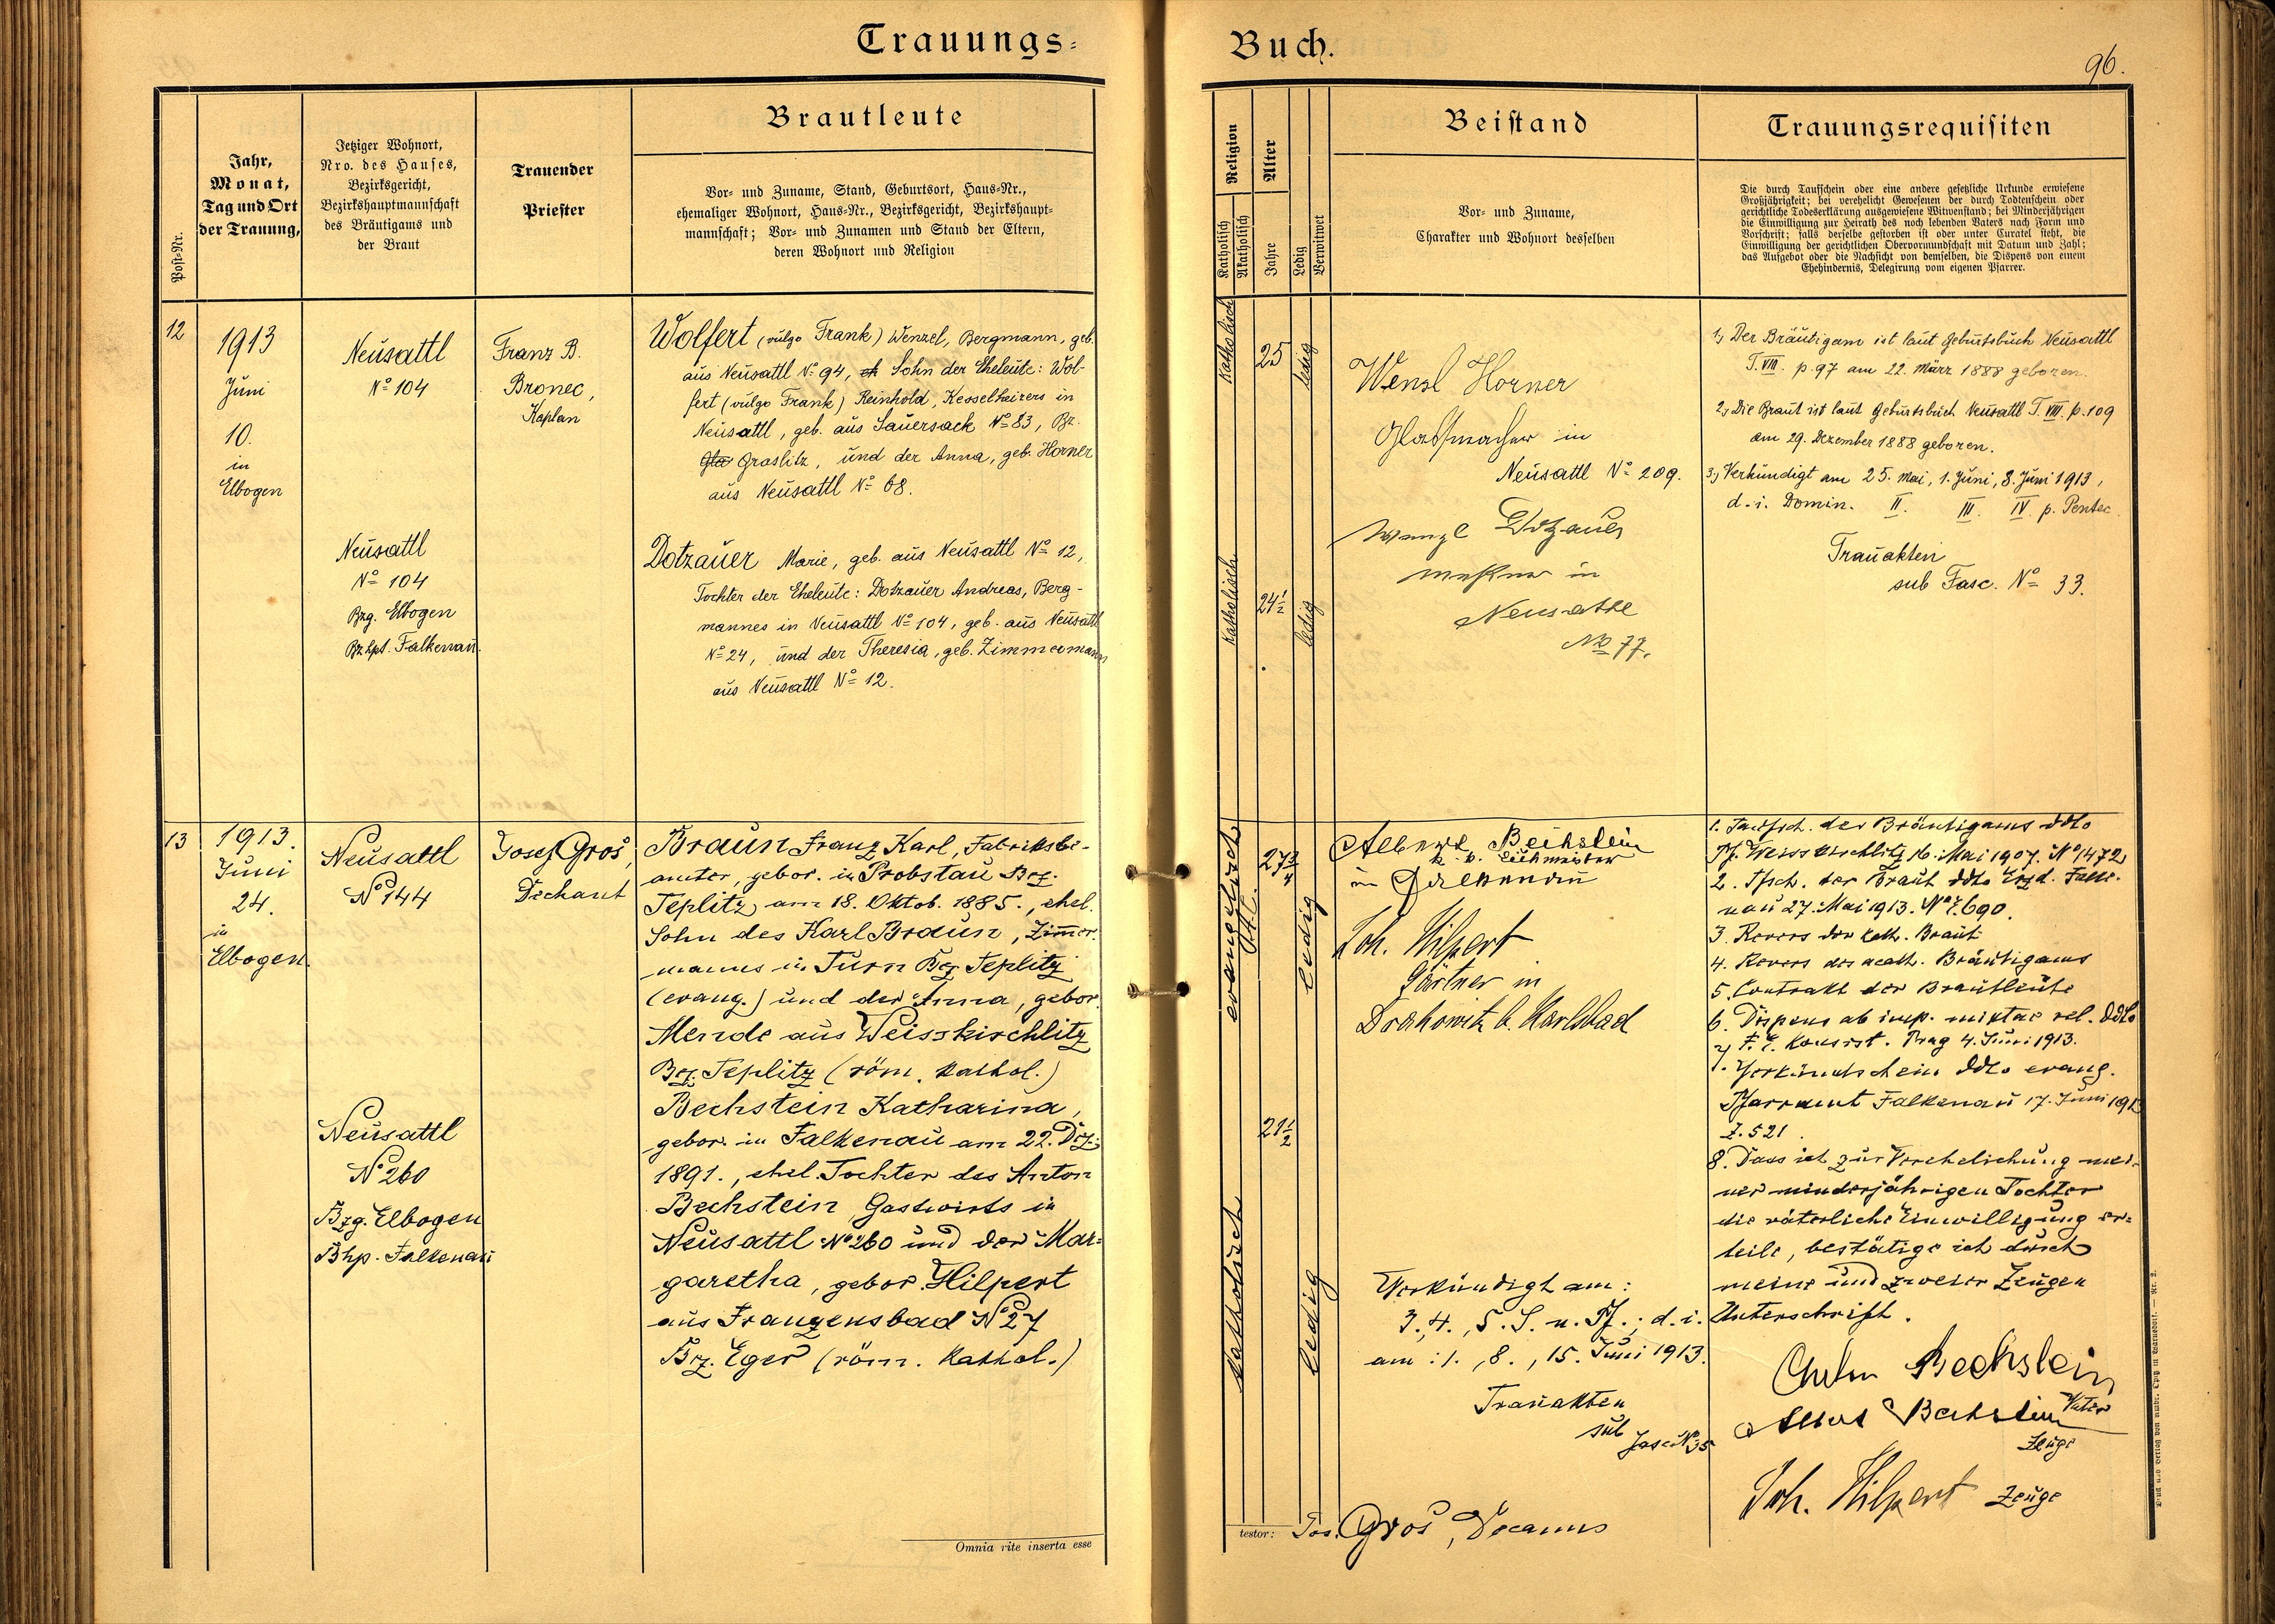 Trauungs=
Buch.
96.
Post=Nr.
Jahr,
Monat,
Tag und Ort
der Trauung,
Jetziger Wohnort,
Nro. des Hauses,
Bezirksgericht,
Bezirkshauptmannschaft
des Bräutigams und
der Braut
Trauender
Priester
Brautleute
Vor= und Zuname, Stand, Geburtsort, Haus=Nr.,
ehemaliger Wohnort, Haus=Nr., Bezirksgericht, Bezirkshaupt=
mannschaft; Vor= und Zunamen und Stand der Eltern,
deren Wohnort und Religion
Religion
Katholisch
Akatholisch
Alter
Jahre
Ledig
Verwitwet
Beistand
Vor= und Zuname,
Charakter und Wohnort desselben
Trauungsrequisiten
Die durch Taufschein oder eine andere gesetzliche Urkunde erwiesene
Großjährigkeit; bei verehelicht Gewesenen der durch Todtenschein oder
gerichtliche Todeserklärung ausgewiesene Witwenstand; bei Minderjährigen
die Einwilligung zur Heirath des noch lebenden Vaters nach Form und
Vorschrift; falls derselbe gestorben ist oder unter Curatel steht, die
Einwilligung der gerichtlichen Obervormundschaft mit Datum und Zahl;
das Aufgebot oder die Nachsicht von demselben, die Dispens von einem
Ehehindernis, Delegirung vom eigenen Pfarrer.
12
1913
Juni
10.
in
Elbogen
Neusattl
No 104
Franz B.
Bronec,
Kaplan
Wolfert (vulgo Frank) Wenzel, Bergmann, geb.
aus Neusattl No 94, Sohn der Eheleute: Wol-
fert (vulgo Frank) Reinhold, Kesselheizers in
Neusattl, geb. aus Sauersack No 83, Bz.
Graslitz, und der Anna, geb. Horner
aus Neusattl No 68.
Neusattl
No 104
Bzg. Elbogen
Bz.hpt. Falkenau.
Dotzauer Marie, geb. aus Neusattl No 12,
Tochter der Eheleute: Dotzauer Andreas, Berg-
mannes in Neusattl No 104, geb. aus Neusattl
No 24, und der Theresia, geb. Zimmermann
aus Neusattl No 12.
katholisch
25
ledig
katholisch
24 1/2
ledig
Wenzl Horner
Glasmacher in
Neusattl No 209.
Wenzl Dotzauer
in
Neusattl
No 77.
1.) Der Bräutigam ist laut Geburtsbuch Neusattl
T. VIII. p. 97 am 22. März 1888 geboren.
2.) Die Braut ist laut Geburtsbuch Neusattl T. VIII. p. 109
am 29. Dezember 1888 geboren.
3.) Verkündigt am 25. Mai, 1. Juni, 8. Juni 1913,
d. i. Domin. II. III. IV. p. Pentec.
Trauakten
sub Fasc. No 33.
13
1913.
Juni
24.
in
Elbogen.
Neusattl
No 144
Josef Gros,
Dechant
Braun Franz Karl, Fabriksbe-
amter, gebor. in Probstau Bez.
Teplitz am 18. Oktob. 1885., ehel.
Sohn des Karl Braun, Zimmer-
manns in Turn Bez. Teplitz
(evang.) und der Anna, gebor.
Mende aus Weisskirchlitz
Bez. Teplitz (röm. kathol.)
Neusattl
No 260
Bzg. Elbogen
Bhp. Falkenau
Bechstein Katharina,
gebor. in Falkenau am 22. Dez.
1891., ehel. Tochter des Anton
Bechstein, Gastwirts in
Neusattl No 260 und der Mar=
garetha, gebor. Hilpert
aus Franzensbad No 27
Bez. Eger (röm. kathol.)
evangelisch
27 3/4
ledig
katholisch
21 1/2
ledig
Albert Bechstein
k. k. Eichmeister
in Falkenau
Joh. Hilpert
Gärtner in
Drahowitz b. Karlsbad
Verkündigt am:
3., 4., 5. S. n. Pf.; d. i.
am: 1., 8., 15. Juni 1913.
Trauakten
sub
Fasc. No 35
1. Taufsch. des Bräutigams ddto
Pf. Weisskirchlitz 16. Mai 1907. No 1472
2. Tfsch. der Braut ddto Erzd. Falke-
nau 27. Mai 1913. No E. 690.
3. Revers der kath. Braut
4. Revers des akath. Bräutigams
5. Contrakt der Brautleute
6. Dispens ab imp. mixtae rel. ddto
F. E. Konsist. Prag 4. Juni 1913.
7. Verkündschein ddto evang.
Pfarramt Falkenau 17. Juni 1913
Z. 521.
8. Dass ich zur Verehelichung mei-
ner minderjährigen Tochter
die väterliche Einwilligung er=
teile, bestätige ich durch
meine und zweier Zeugen
Unterschrift.
Anton Bechstein
Vater
Albert Bechstein
Zeuge
Joh. Hilpert Zeuge
Omnia rite inserta esse
testor: Jos. Gros, Decanus